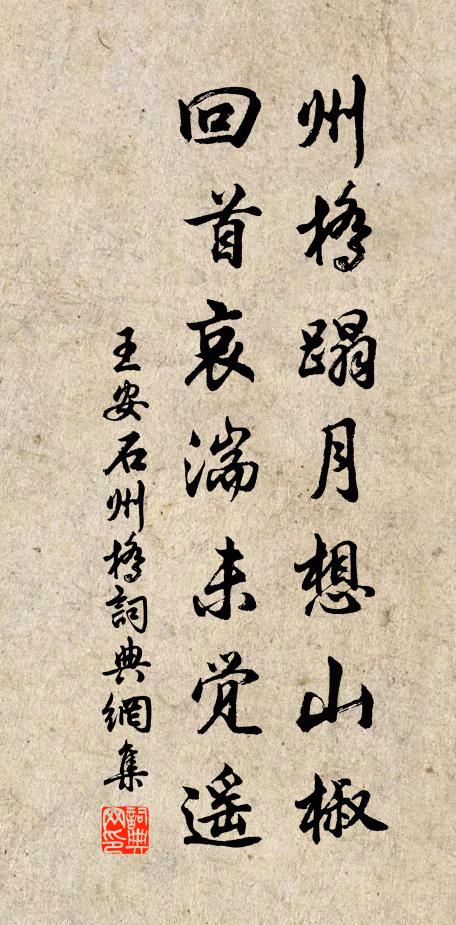 州橋蹋月想山椒
回首哀湍未覺遥
王安石州橋詞典網集
詞典网印